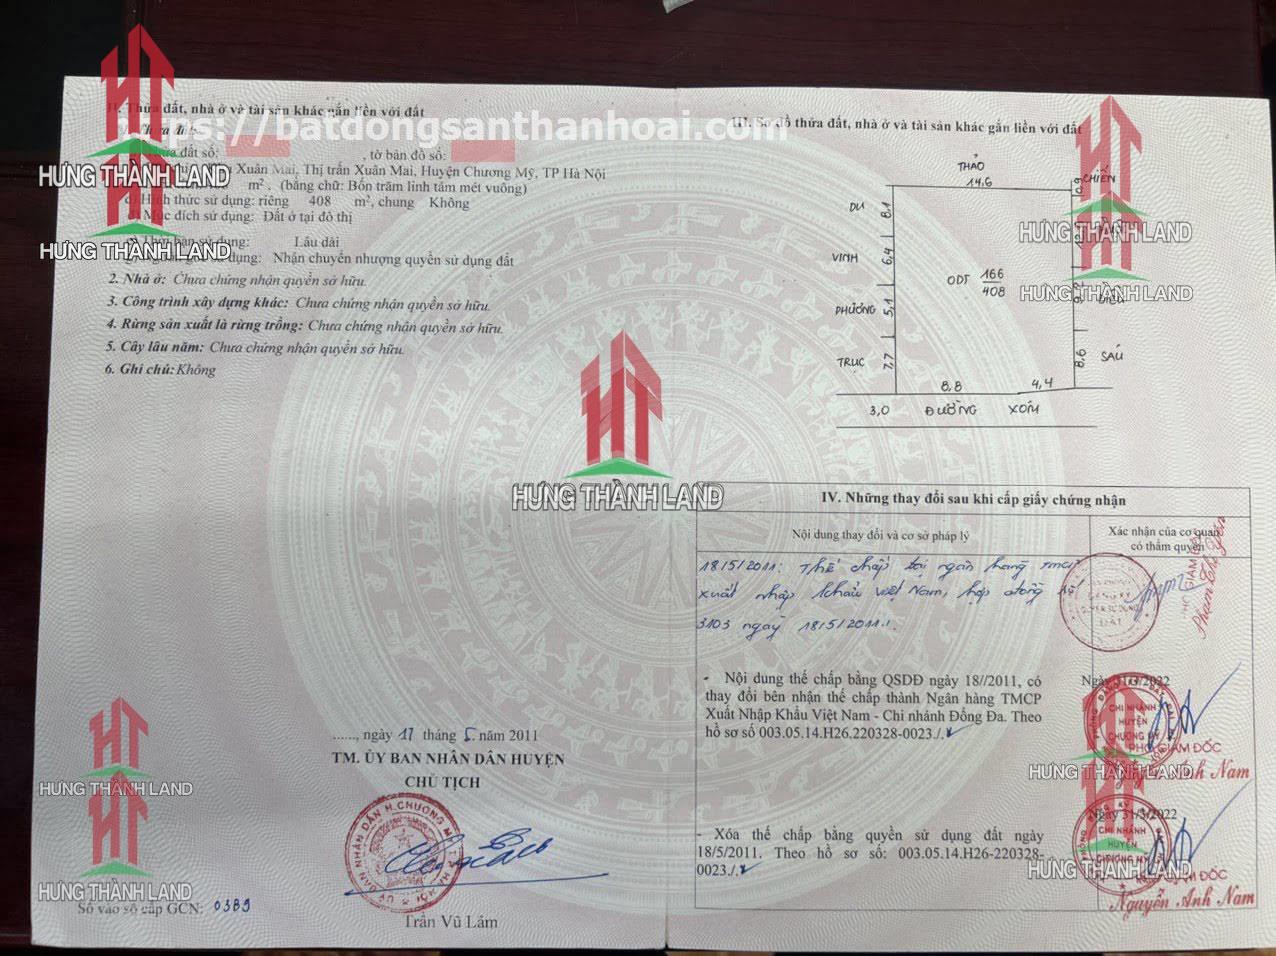 II. Thửa đất, nhà ở và tài sản khác gắn liền với đất
https://batdongsanthanhoai.com
Thửa đất số: , tờ bản đồ số:
Xuân Mai, Thị trấn Xuân Mai, Huyện Chương Mỹ, TP Hà Nội
m². (bằng chữ: Bốn trăm linh tám mét vuông)
Hình thức sử dụng: riêng 408 m², chung Không
Mục đích sử dụng: Đất ở tại đô thị
sử dụng: Lâu dài
sử dụng: Nhận chuyển nhượng quyền sử dụng đất
2. Nhà ở: Chưa chứng nhận quyền sở hữu.
3. Công trình xây dựng khác: Chưa chứng nhận quyền sở hữu.
4. Rừng sản xuất là rừng trồng: Chưa chứng nhận quyền sở hữu.
5. Cây lâu năm: Chưa chứng nhận quyền sở hữu.
6. Ghi chú: Không
HƯNG THÀNH LAND
HƯNG THÀNH LAND
......, ngày 17 tháng 5 năm 2011
TM. ỦY BAN NHÂN DÂN HUYỆN
CHỦ TỊCH
Trần Vũ Lâm
HƯNG THÀNH LAND
HƯNG THÀNH LAND
Số vào sổ cấp GCN: 0389
HƯNG THÀNH LAND
III. Sơ đồ thửa đất, nhà ở và tài sản khác gắn liền với đất
THẢO
14,6
0,9
CHIẾN
DU
8,1
VINH
6,4
ODT 166
408
PHƯỜNG
5,1
TRUC
7,7
8,6
SÁU
8,8
4,4
3,0 ĐƯỜNG XÓM
HƯNG THÀNH LAND
HƯNG THÀNH LAND
IV. Những thay đổi sau khi cấp giấy chứng nhận
Nội dung thay đổi và cơ sở pháp lý
Xác nhận của cơ quan
có thẩm quyền
18/5/2011: Thế chấp tại ngân hàng TMCP
xuất nhập khẩu Việt Nam, hợp đồng số
3103 ngày 18/5/2011.
- Nội dung thế chấp bằng QSDĐ ngày 18//2011, có
thay đổi bên nhận thế chấp thành Ngân hàng TMCP
Xuất Nhập Khẩu Việt Nam - Chi nhánh Đống Đa. Theo
hồ sơ số 003.05.14.H26.220328-0023./.
Ngày 31/3/2022
CHI NHÁNH
HUYỆN
CHƯƠNG MỸ
PHÓ GIÁM ĐỐC
Nguyễn Anh Nam
HƯNG THÀNH LAND
- Xóa thế chấp bằng quyền sử dụng đất ngày
18/5/2011. Theo hồ sơ số: 003.05.14.H26-220328-
0023./.
Ngày 31/3/2022
CHI NHÁNH
HUYỆN
CHƯƠNG MỸ
GIÁM ĐỐC
Nguyễn Anh Nam
HƯNG THÀNH LAND